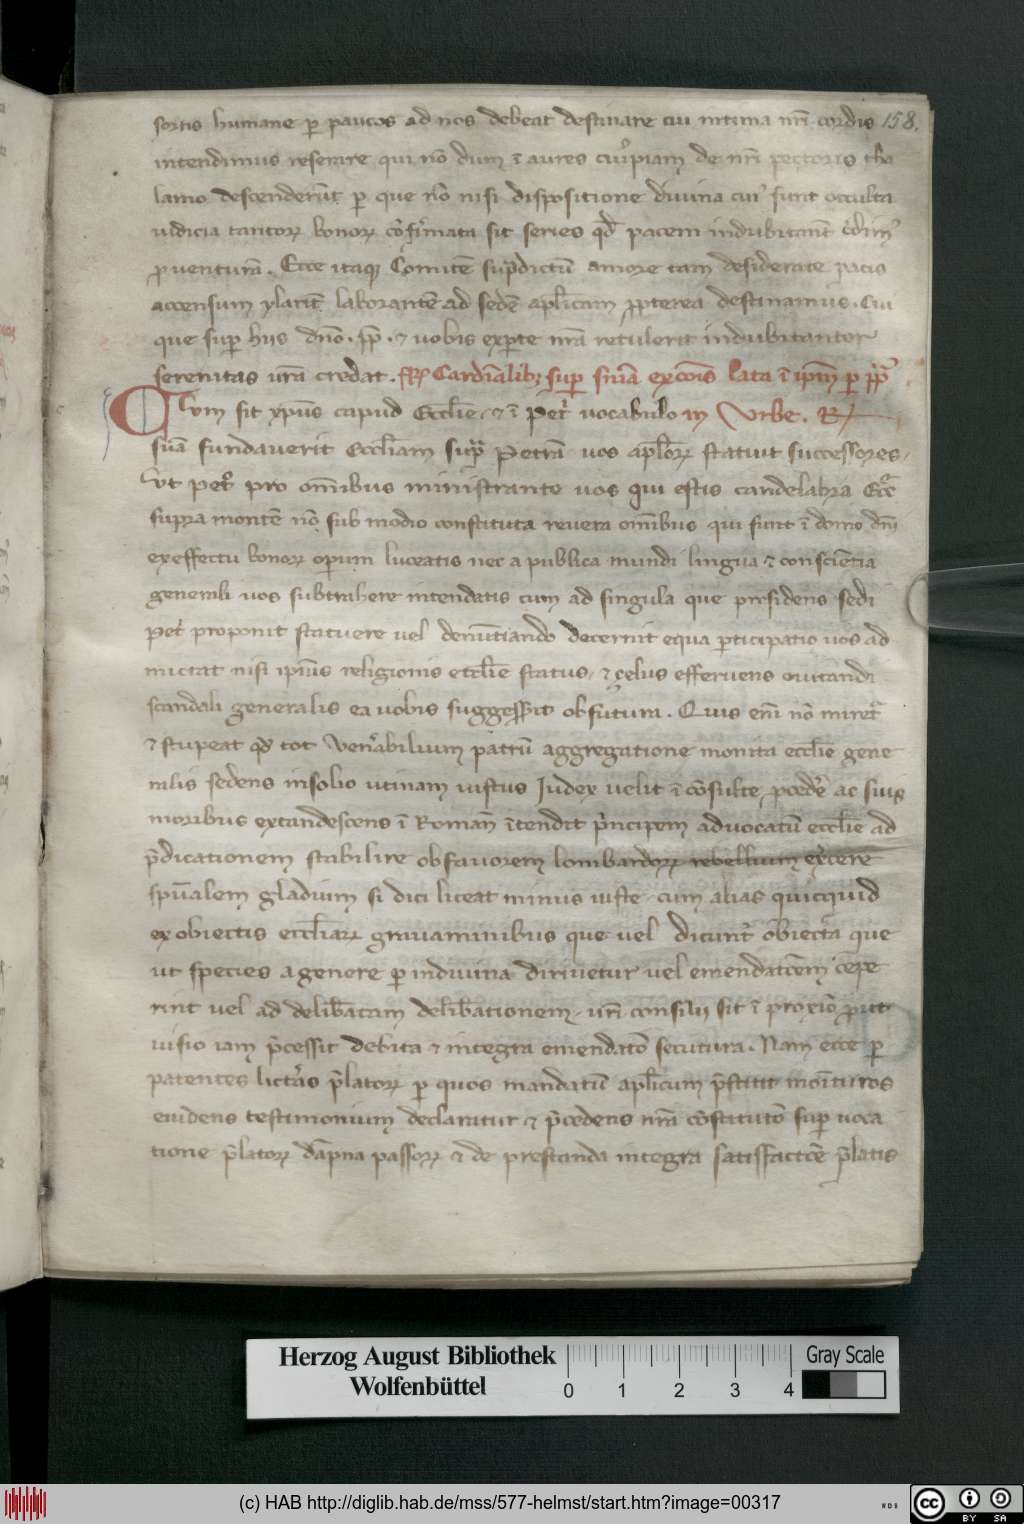 sortis humane p paucos ad nos debeat destinare cui intima nri cordis 158.
intendimus reserare qui nō dum ī aures cuiuspiam de nri pectoris tha
lamo descenderūt p que nō nisi dispositione divina cui sunt occulta
iudicia tantorꝝ bonorꝝ cōfirmata sit series qd pacem indubitant
pventurā. Ecce itaqꝫ Comitē supdictū amore tam desiderate pacis
accensum ylarit laborantē ad sedē aplicam ppterea destinamus. Cui
que sup hiis dno. pp. ⁊ vobis exparte nra retulerit indubitanter
serenitas vra credat. Cardinalibꝫ sup snia excōis lata ī ipm p pp
Cum sit xpus caput Ecclie, ⁊ ī Petri vocabulo in Urbe. R
suā fundaverit Ecclesiam supra Petrā vos aplorꝝ statuit successores,
Ut Petro pro omībus ministrante vos qui estis candelabra Ecce
supra montē nō sub modio constituta revera omībus qui sunt ī domo dni
ex effectu bonorꝝ operum luceatis nec a publica mundi lingua ⁊ consciētia
generali vos subtrahere intendatis cum ad singula que presidens sedi
Petri proponit statuere vel denūtiando decernit equa pticipatio vos ad
mictat nisi ipius religionis ecclie status, ⁊ çelus effervens vitandi
scandali generalis ea vobis suggesserit obfutura. Quis eni nō miretur
⁊ stupeat qd tot venerabilium patrū aggregatione monita ecclie gene
ralis sedens in solio utinam iustus Judex velit īconsulte pcedere ac suis
moribus excandescens ī Romanū ītendit principem advocatū ecclie ad
pdicationem stabilire ob favorem lombardorꝝ rebellium exercere
spūalem gladium si dici liceat minus iuste cum alias quicquid
ex obiectis ecclesiarꝝ gravaminibus que vel dicunt obiecta que
ut species a genere p indivina dirivetur vel emendationem cepe
rint vel ad deliberatam deliberationem, vri consilii sit ī proximo prout
visio iam pcessit debita ⁊ integra emendatio secutura. Nam ecce p
patentes licteras platorꝝ p quos mandatū aplicum pstitit monituros
evidens testimonium declaratur ⁊ pcedens nra cōstitutio sup voca
tione platorꝝ dampna passorꝝ ⁊ de prestanda integra satisfactione platis
Herzog August Bibliothek
Wolfenbüttel
0 1 2 3 4
Gray Scale
(c) HAB http://diglib.hab.de/mss/577-helmst/start.htm?image=00317
WDB
cc
BY SA